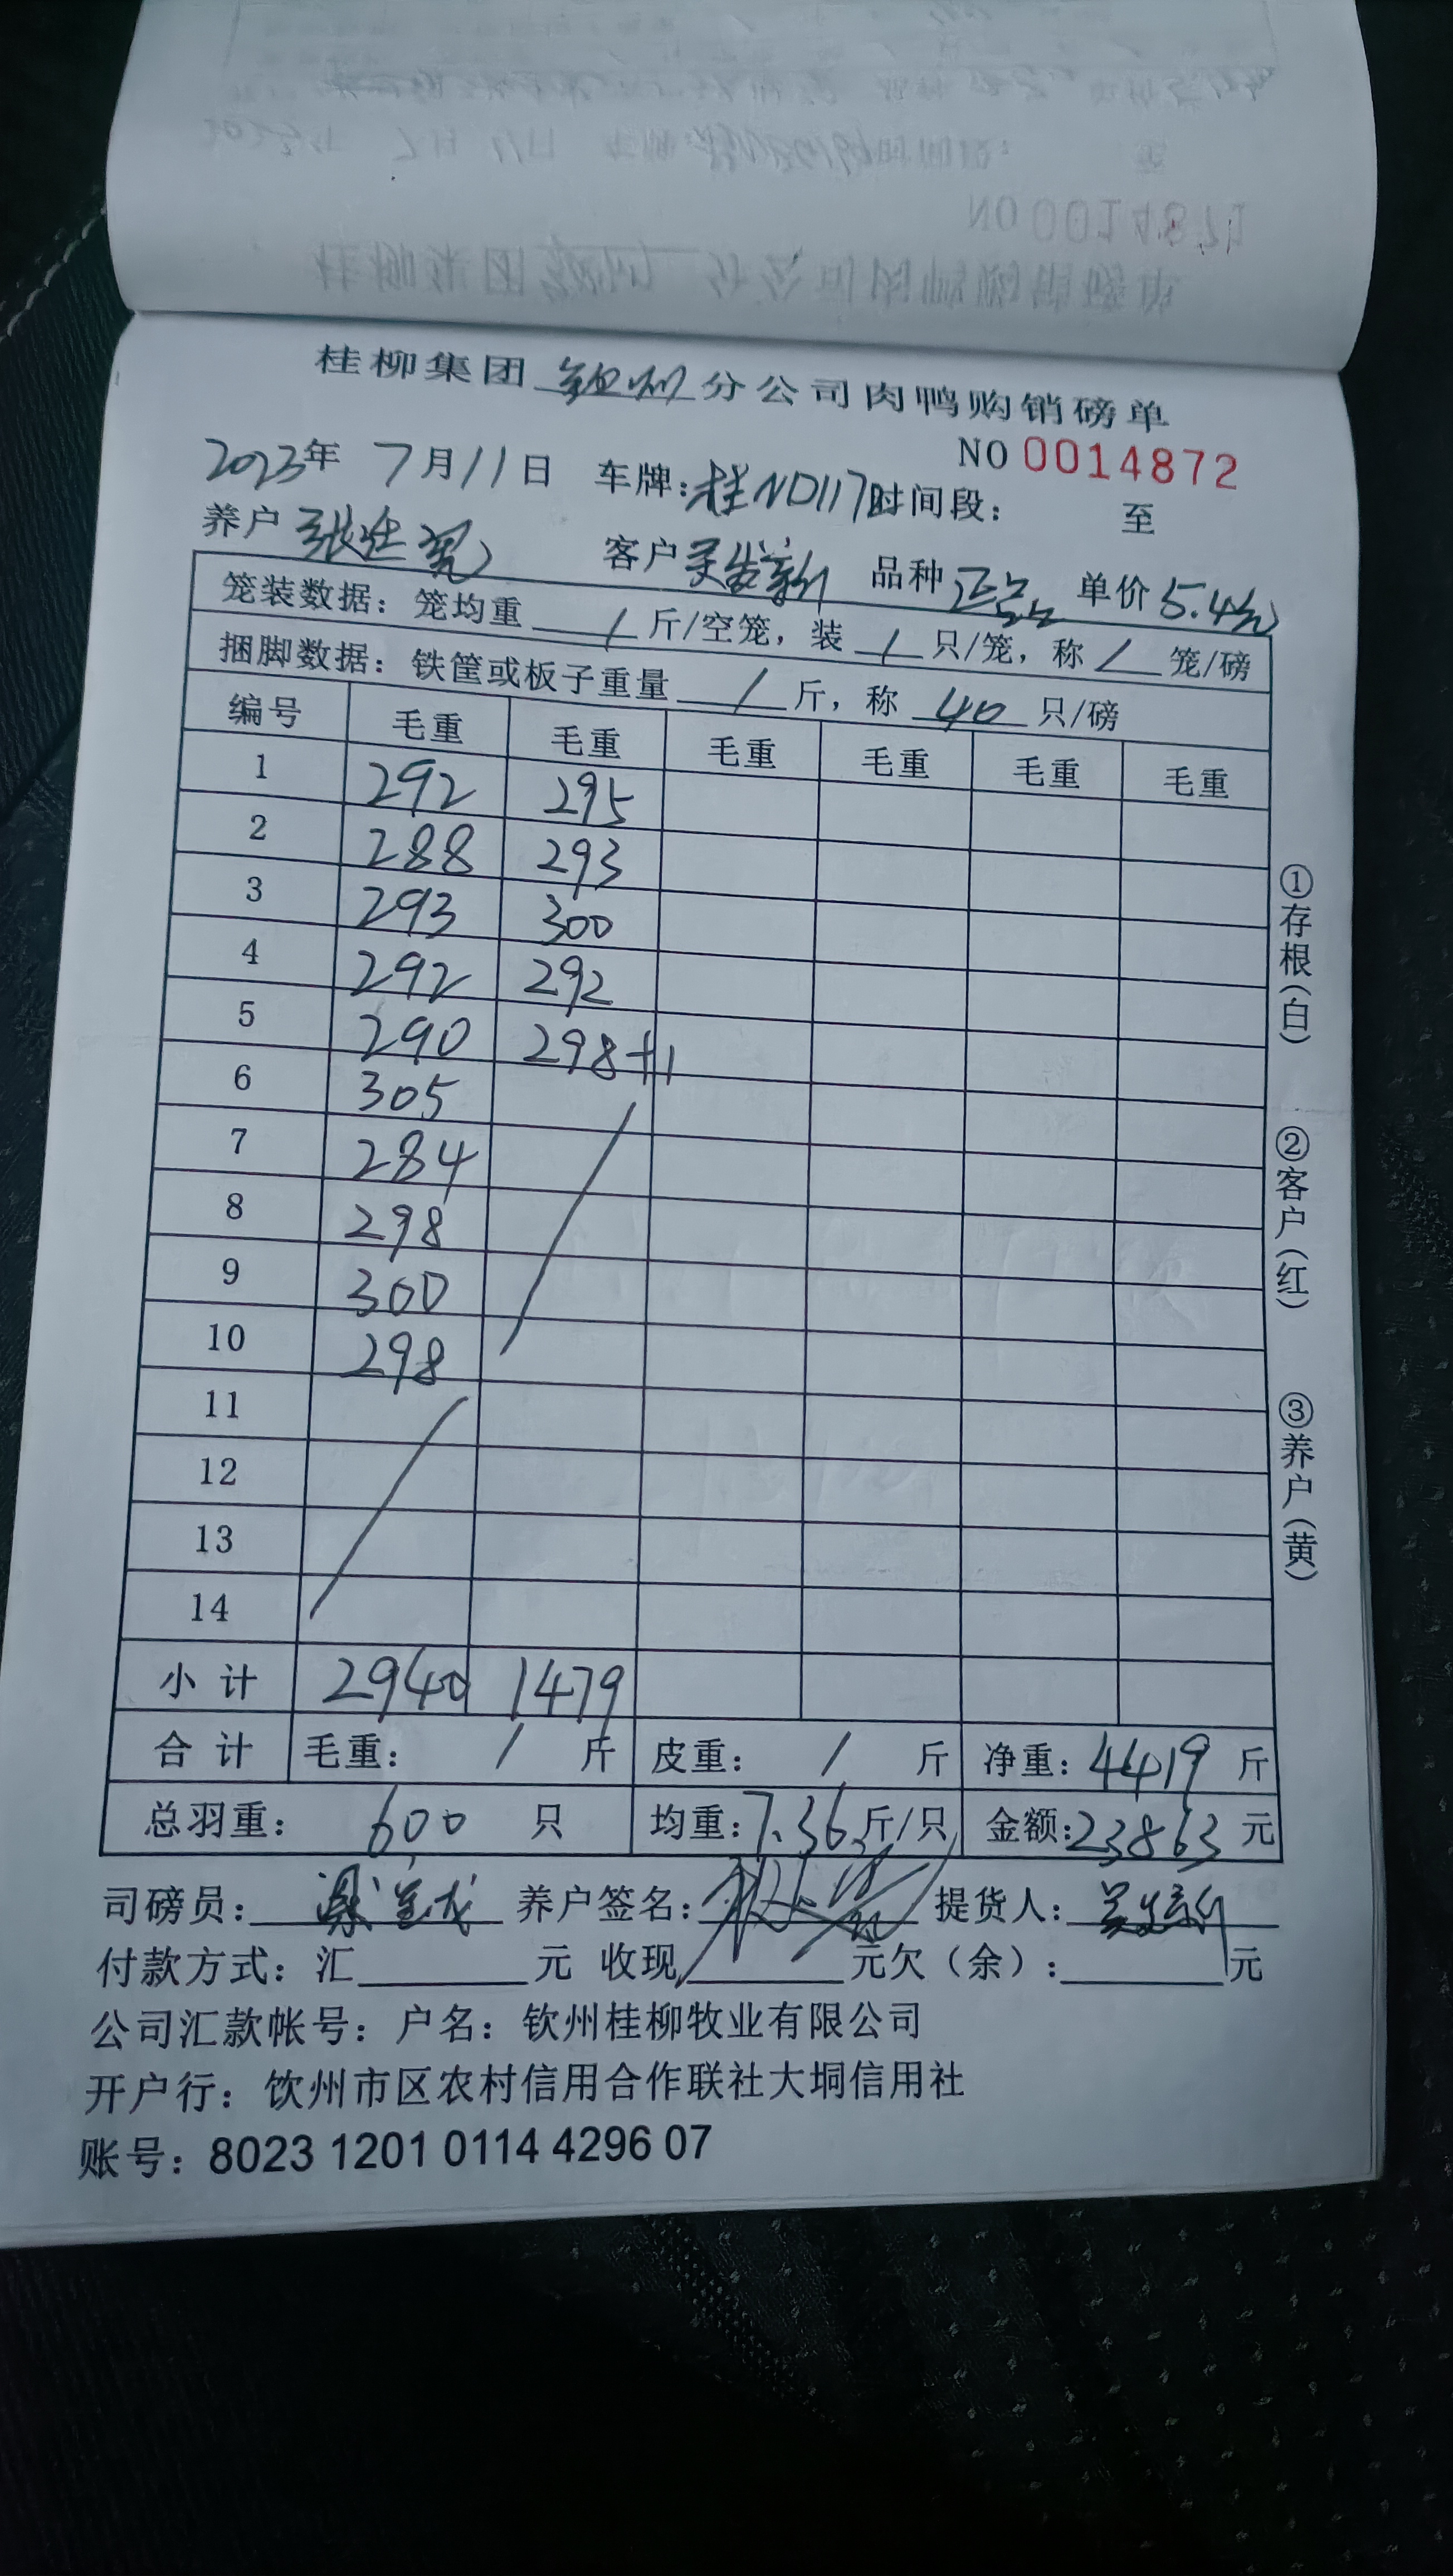 NO 0014871
桂柳集团钦州分公司肉鸭购销磅单
NO 0014872
2023年 7月11日 车牌:桂ND117时间段: 至
养户 张 客户 品种 正品 单价 5.4元
笼装数据: 笼均重 / 斤/空笼, 装 / 只/笼, 称 / 笼/磅
捆脚数据: 铁筐或板子重量 / 斤, 称 40 只/磅
编号 毛重 毛重 毛重 毛重 毛重 毛重
1 292 295
2 288 293
3 293 300
4 292 292
5 290 298+1
6 305
7 284
8 298
9 300
10 298
11
12
13
14
小计 2940 1479
合计 毛重: / 斤 皮重: / 斤 净重: 4419 斤
总羽重: 600 只 均重: 7.36 斤/只 金额: 23863 元
司磅员: 养户签名: 提货人:
付款方式: 汇 元 收现 元欠(余): 元
公司汇款帐号: 户名: 钦州桂柳牧业有限公司
开户行: 饮州市区农村信用合作联社大垌信用社
账号: 8023 1201 0114 4296 07
①存根(白)
②客户(红)
③养户(黄)